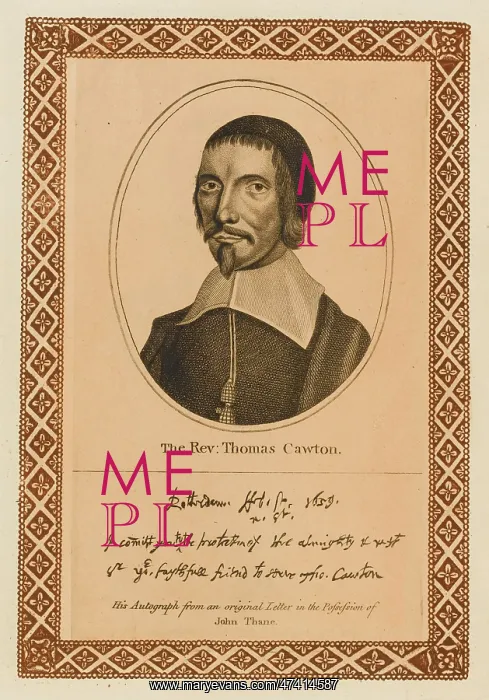 ME
PL
The Rev: Thomas Cawton.
ME
PL
Rotterdam 1659.
comitt protection of the almighty & rest
yr faythfull friend to serve Tho. Cawton
His Autograph from an original Letter in the Possession of
John Thane.
www.maryevans.com/47414587